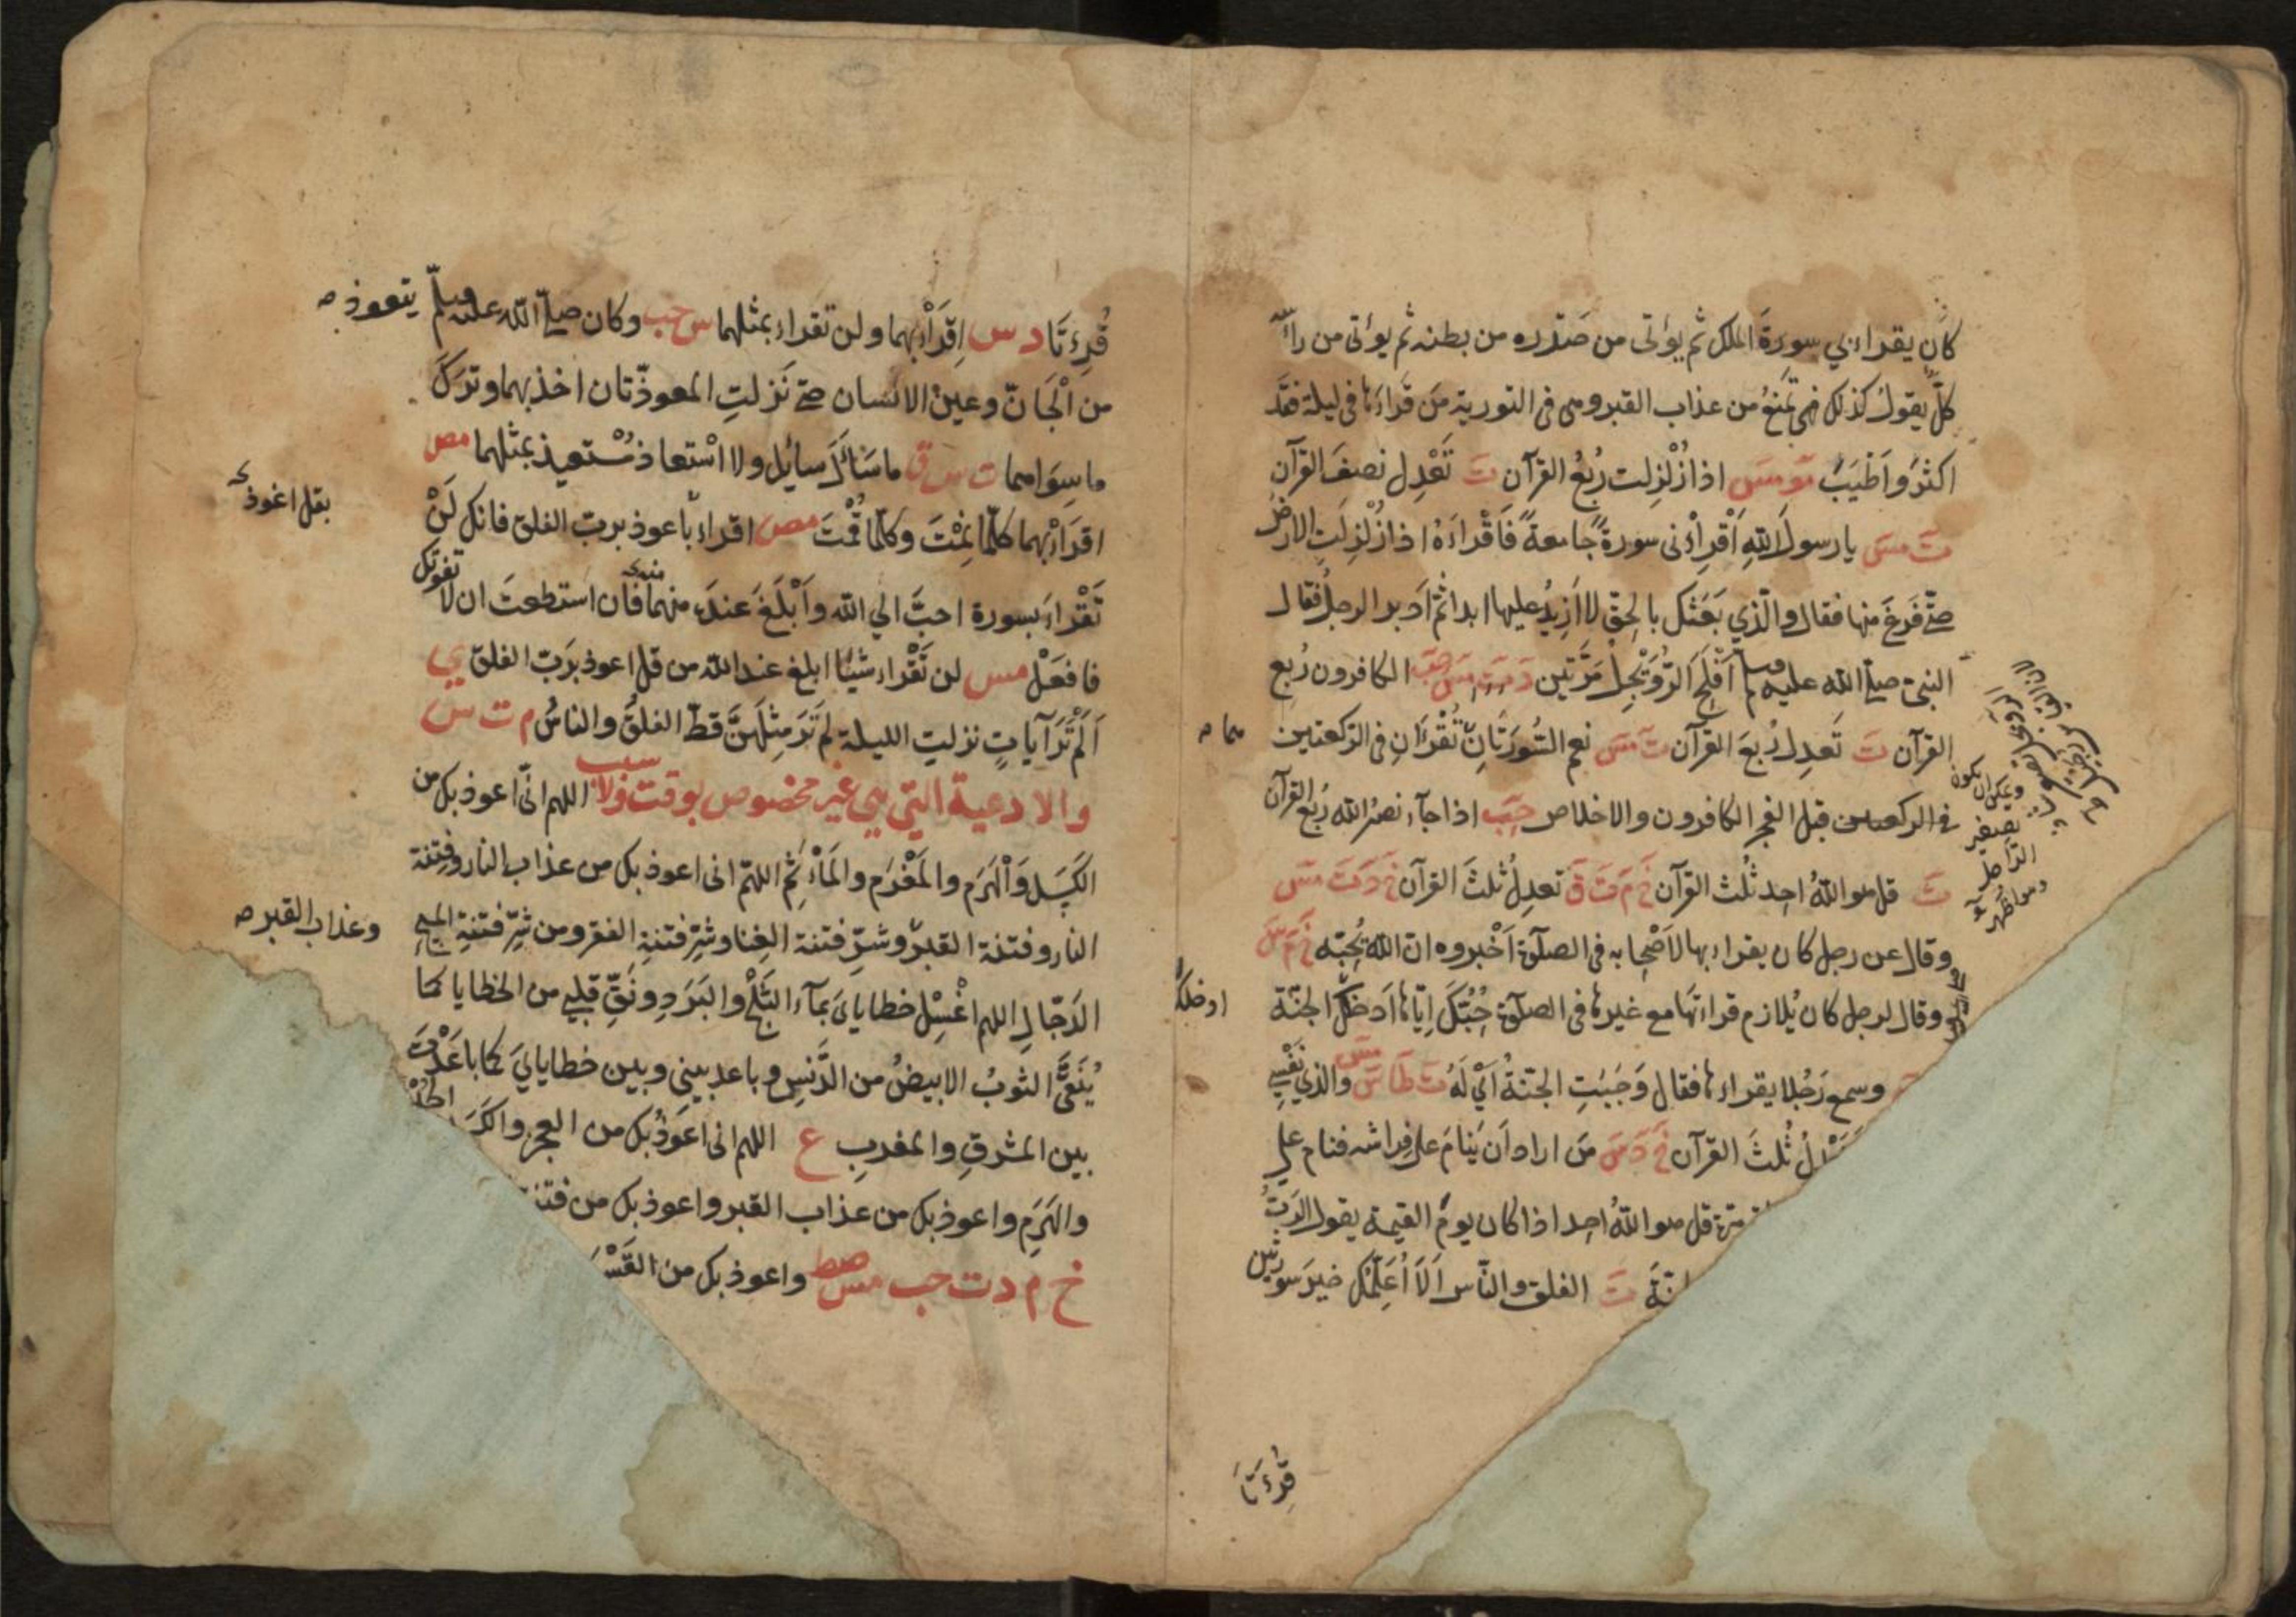 كان يقراء بي سورةَ الملك ثم يؤتى من صَدره من بطنه ثم يؤتى من رأ
كلٌّ يقولُ كذلك فهى تمنَعُ من عذاب القبر وهى فى التورية مَن قَراءَها فى ليلة فقَد
اكثَرَ واَطْيَبَ مَو مسَ اذا زُلْزِلت رُبعُ القرآن تَ تَعْدِل نصفَ القرآن
تَ مسَ يا رسولَ اللهِ اَقْرِأْنى سورةً جامعةً فَاَقْراءَهُ اذا زُلْزِلَتِ الارضُ
حتّى فَرَغَ منها فقال والّذي بَعَثك بالحقّ لا اَزِيدُ عليها ابدا ثمّ اَدبر الرجلُ فقال
النبىّ صلى الله عليه وسلم اَفْلَحَ الرُّوَيْجِلُ مَرَّتين دَ سَ مسَ حِبَ الكافرون رُبع
القرآن تَ تَعدِل رُبعَ القرآن تَ مسَ نعم السُّورَتانِ تُقْرَءَانِ فى الرّكعتين
هما
فى الركعتين قبل الفجر الكافرون والاخلاص حِبَ اذا جآء نصرُ الله رُبع القرآن
تَ قل هو اللهُ احد ثُلُث القرآن خَ مَ تَ قَ تعدِلُ ثلثَ القرآن خَ دَ تَ مسَ
وقال عن رجل كان يقراء بها لاَصْحابه فى الصلوة اَخْبروه ان الله يُحِبّه خَ مَ سَ
وقال لرجل كان يُلازم قراءتَها مع غيرها فى الصلوة حُبُّكَ اِيّاها اَدخلَك الجنّة
ادخلك
وسمع رَجُلا يقراءها فقال وَجَبَتِ الجنّةُ اَيْ لَهُ تَ طَا سَ مسَ والذي نَفْسِي
ثُلثَ القرآن خَ دَ سَ مَن اراد اَن يَنامَ على فِراشه فنام على
مرّة قل هو اللهُ احد اذا كان يومُ القيمة يقول الرَبّ
تَ الفلق والنّاس اَلاَ اُعَلِّمُك خيرَ سورتين
ويمكن ان يكون
تصغير
الرّاجل
وهو اظهر
قُرِءَتَا
قُرِءَتَا د س اِقْرَأْ بهما ولن تقراء بمثلهما س حب وكان صلى الله عليه وسلم يتعوذ
من الْجَانّ وعين الانسان حتى نَزَلتِ المعوذّتان اخذ بهما وتَرَكَ
ما سِوَاهما ت س ق ما سَألَ سائل ولا اسْتعاذ مُسْتعيذ بمثلهما مص
اقرَاءْ بهما كلّما نِمْتَ وكلّما قُمْتَ مص اقراءْ باعوذ بربّ الفلق فانك لَنْ
بقل اعوذ
تَقْراءَ بسورة احبَّ الي الله واَبْلَغَ عندَه منها فَان استطعتَ ان لا تفوتك
فافعَلْ مس لن تَقْراء شيئا ابلغ عند الله من قل اعوذ برَبّ الفلق ي
اَلَمْ تَرَ آياتٍ نزلتِ الليلة لم تَرَ مِثْلَهُنَّ قطُّ الفلقُ والناسُ م ت س
والادعية التي هي غير مخصوص بوقت ولا سبب اللهم انّى اعوذ بك من
الكَسَل وَالْهَرَم والمَغْرَم والمَأْثَم اللهمّ انى اعوذ بك من عذاب النار وفِتنة
النار وفتنة القبر وشرّ فتنة الغِنا وشرّ فتنةِ الفقر ومن شرّ فتنةِ المسيح
وعذاب القبر
الدَجّالِ اللهم اغْسِل خطايايَ بمآء الثَّلْجِ والبَرَدِ ونَقِّ قلبي من الخطايا كما
يُنَقَّى الثوبُ الابيضُ من الدَّنَسِ وباعد بيني وبين خطايايَ كما باعَدْتَ
بين المشرقِ والمغربِ ع اللهم انى اعوَذُ بك من العجز والكَسَ
والهَرَمِ واعوذ بك من عذاب القبر واعوذ بك من فتنة
خ م د ت حب مس صط واعوذ بك من القَسْ